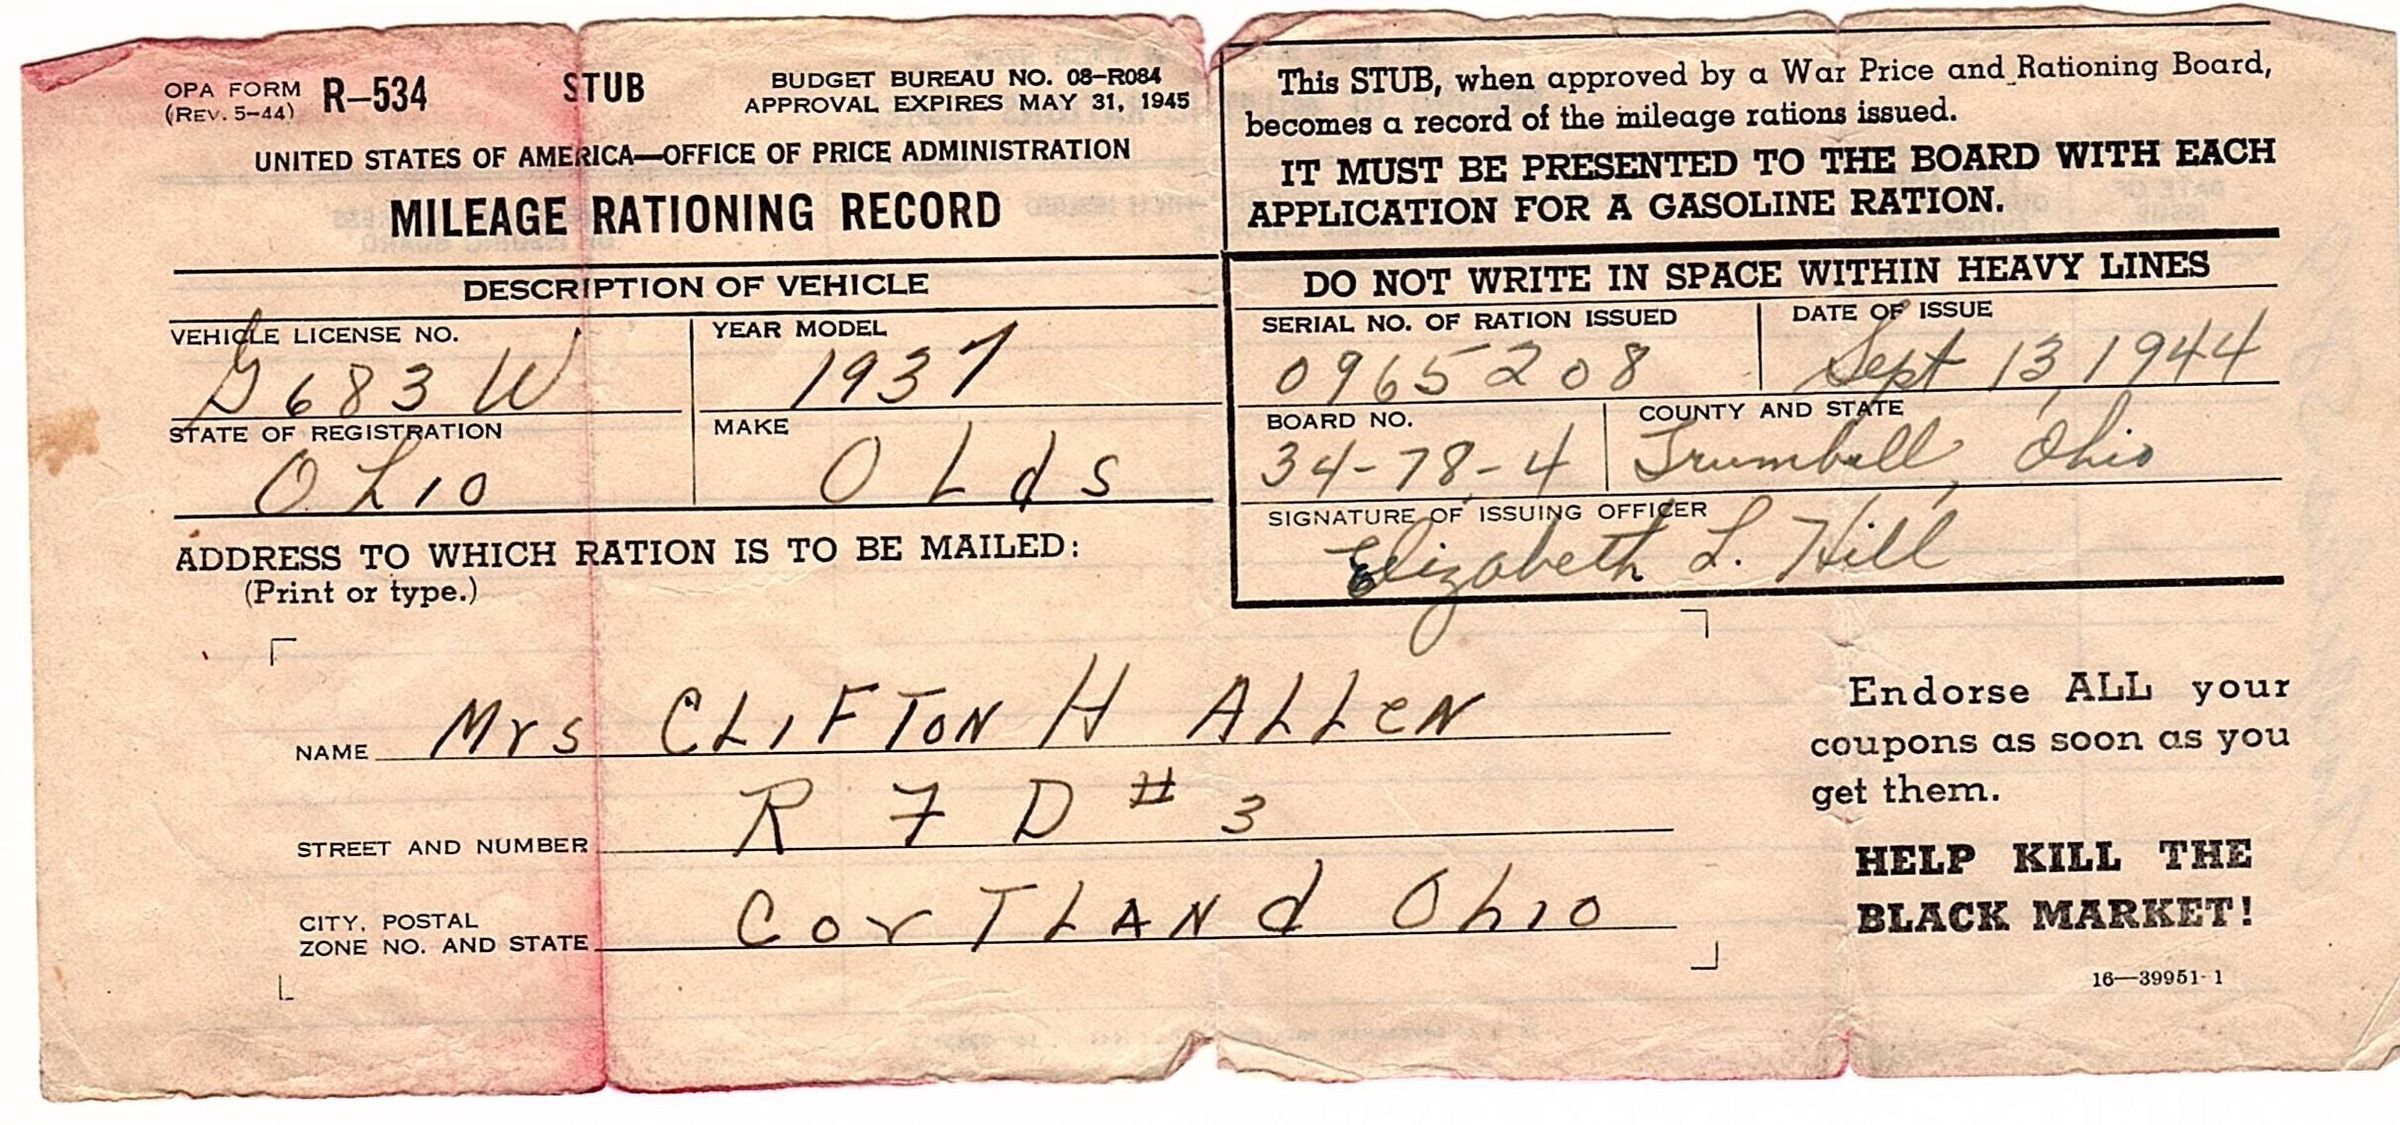 OPA FORM R–534 STUB BUDGET BUREAU NO. 08–R084
(REV. 5–44) APPROVAL EXPIRES MAY 31, 1945
UNITED STATES OF AMERICA—OFFICE OF PRICE ADMINISTRATION
MILEAGE RATIONING RECORD
DESCRIPTION OF VEHICLE
VEHICLE LICENSE NO. YEAR MODEL
G 683 W 1937
STATE OF REGISTRATION MAKE
Ohio OLds
ADDRESS TO WHICH RATION IS TO BE MAILED:
(Print or type.)
This STUB, when approved by a War Price and Rationing Board,
becomes a record of the mileage rations issued.
IT MUST BE PRESENTED TO THE BOARD WITH EACH
APPLICATION FOR A GASOLINE RATION.
DO NOT WRITE IN SPACE WITHIN HEAVY LINES
SERIAL NO. OF RATION ISSUED DATE OF ISSUE
0965208 Sept 13, 1944
BOARD NO. COUNTY AND STATE
34-78-4 Trumbull, Ohio
SIGNATURE OF ISSUING OFFICER
Elizabeth L. Hill
NAME Mrs CLiFTON H ALLeN
STREET AND NUMBER R F D # 3
CITY, POSTAL
ZONE NO. AND STATE CorTLANd Ohio
Endorse ALL your
coupons as soon as you
get them.
HELP KILL THE
BLACK MARKET!
16—39951-1